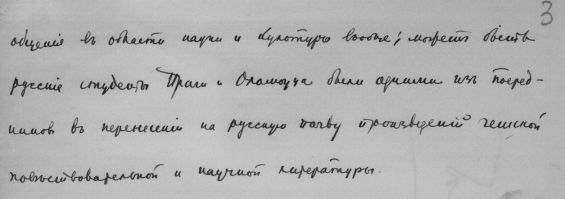 3
общенія въ области науки и культуры вообще; можетъ быть
русскіе студенты Праги и Оломоуца были одними изъ посред-
никовъ въ перенесеніи на русскую почву произведеній чешской
повѣствовательной и научной литературы.